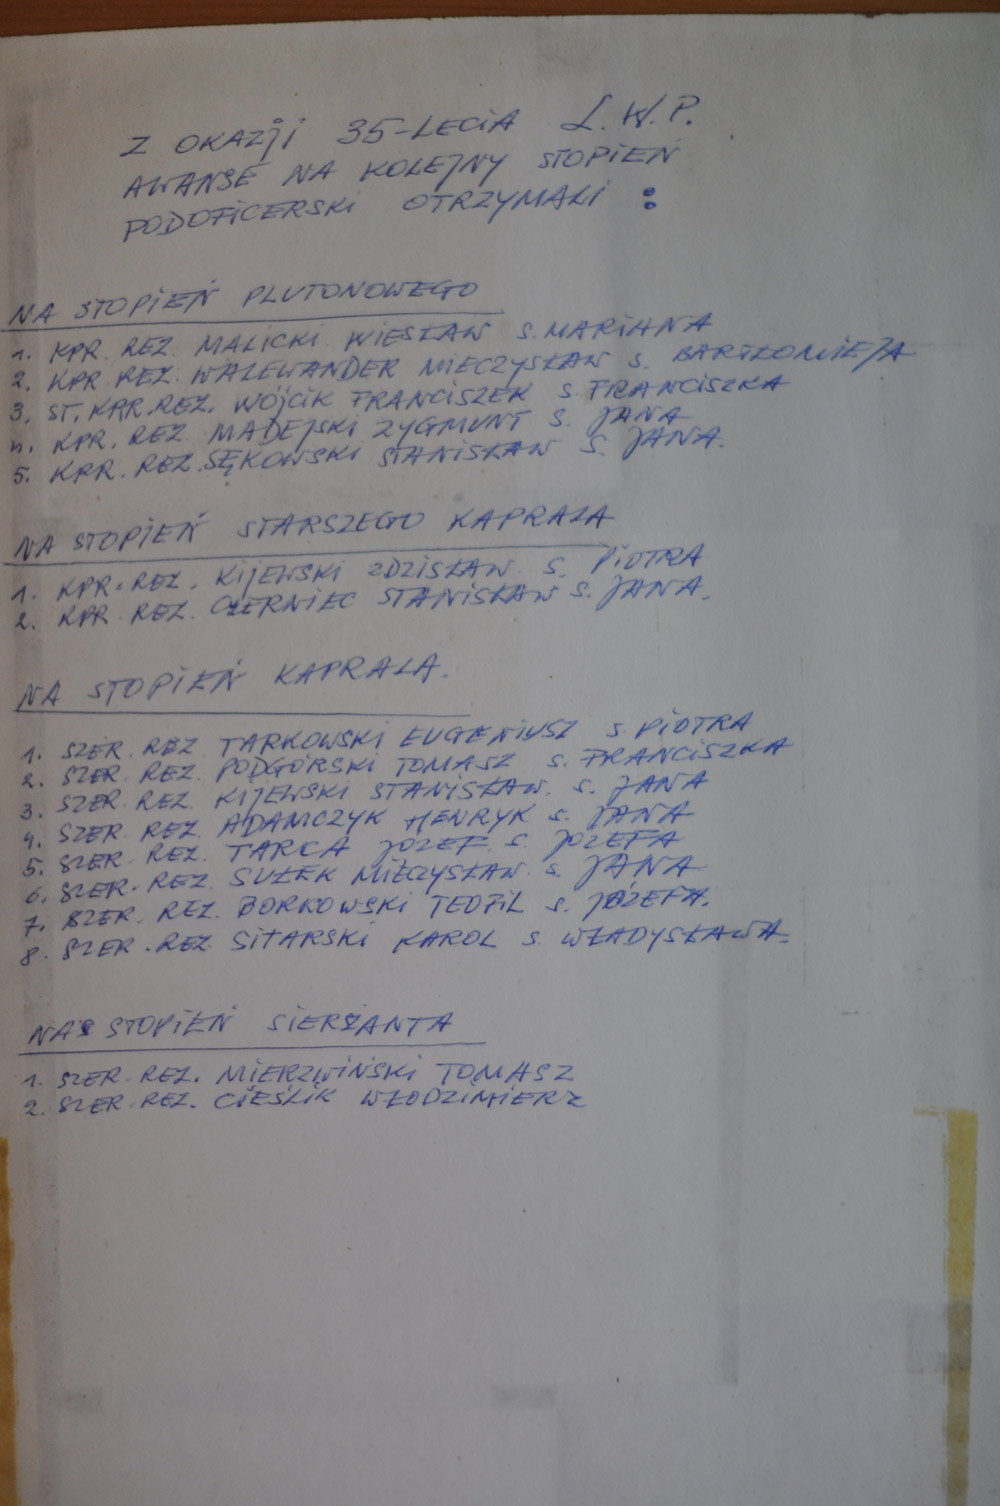 Z OKAZJI 35-LECIA L.W.P.
AWANSE NA KOLEJNY STOPIEŃ
PODOFICERSKI OTRZYMALI :
NA STOPIEŃ PLUTONOWEGO
1. KPR. REZ. MALICKI WIESŁAW S. MARIANA
2. KPR. REZ. WALEWANDER MIECZYSŁAW S. BARTŁOMIEJA
3. ST. KPR. REZ. WÓJCIK FRANCISZEK S. FRANCISZKA
4. KPR. REZ. MADEJSKI ZYGMUNT S. JANA
5. KPR. REZ. SĘKOWSKI STANISŁAW S. JANA.
NA STOPIEŃ STARSZEGO KAPRALA
1. KPR. REZ. KIJEWSKI ZDZISŁAW. S. PIOTRA
2. KPR. REZ. CZERNIEC STANISŁAW S. JANA.
NA STOPIEŃ KAPRALA.
1. SZER. REZ. TARKOWSKI EUGENIUSZ S. PIOTRA
2. SZER. REZ. PODGÓRSKI TOMASZ S. FRANCISZKA
3. SZER. REZ. KIJEWSKI STANISŁAW. S. JANA
4. SZER. REZ. ADAMCZYK HENRYK S. JANA
5. SZER. REZ. TARCA JÓZEF S. JÓZEFA
6. SZER. REZ. SUŁEK MIECZYSŁAW. S. JANA
7. SZER. REZ. BORKOWSKI TEOFIL S. JÓZEFA.
8. SZER. REZ. SITARSKI KAROL S. WŁADYSŁAWA.
NA STOPIEŃ SIERŻANTA
1. SZER. REZ. MIERZWIŃSKI TOMASZ
2. SZER. REZ. CIEŚLIK WŁODZIMIERZ